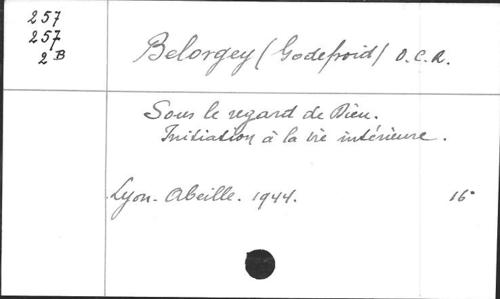 257
257
2 B
Belorgey (Godefroid) O.C.R.
Sous le regard de Dieu.
Initiation à la vie intérieure.
Lyon. Abeille. 1944. 16°